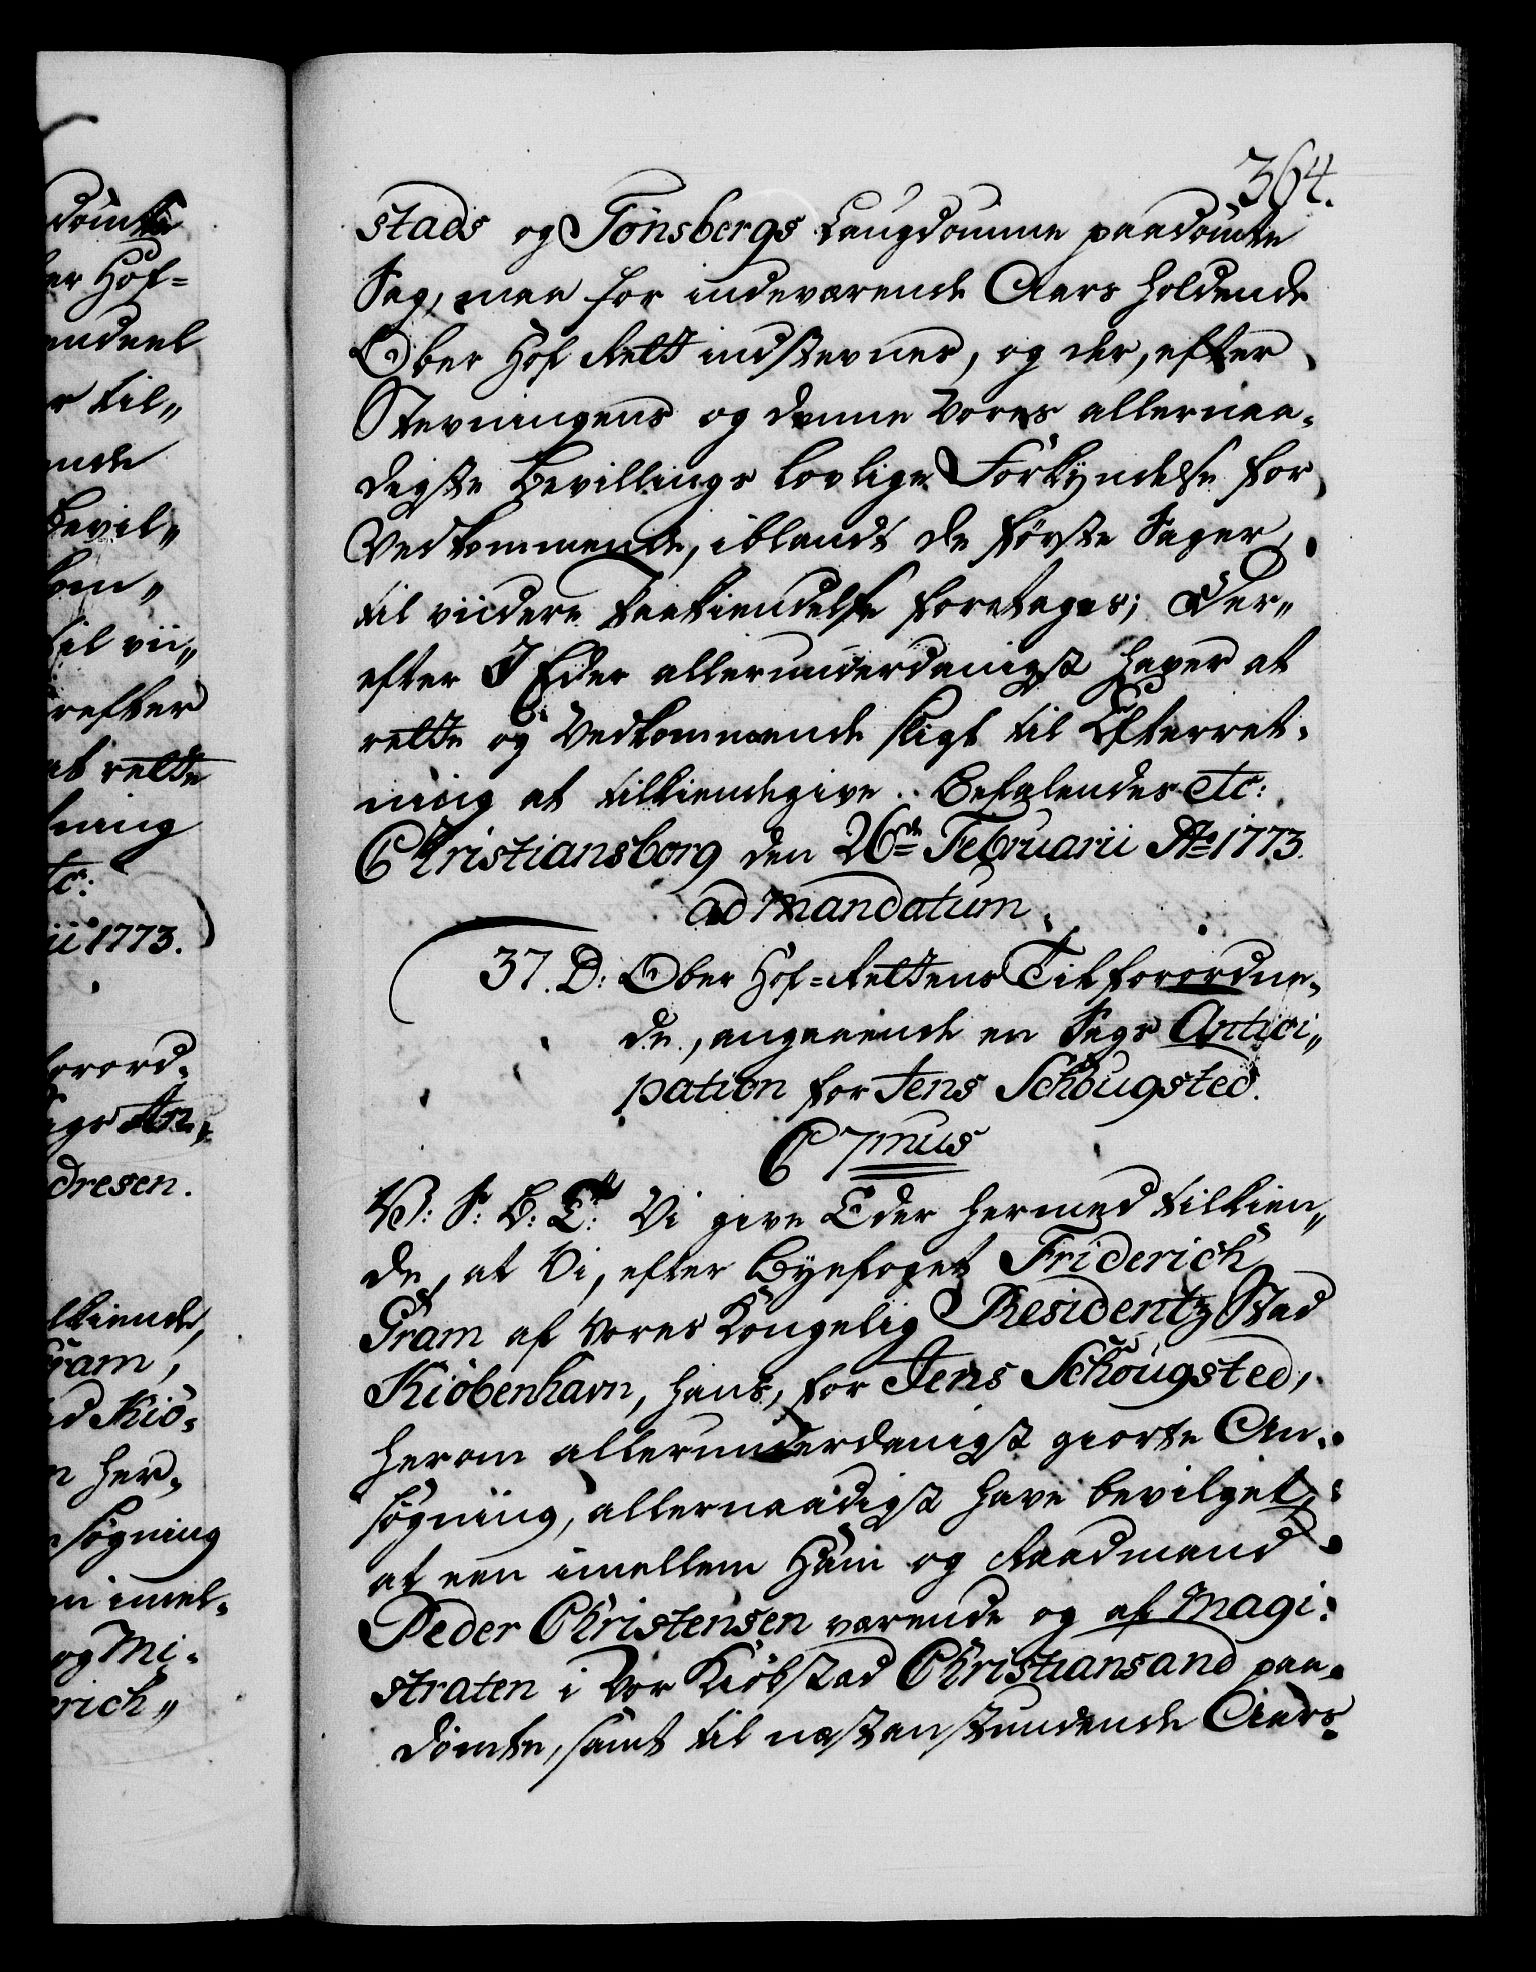 364.
stads og Tønsbergs Laugdømme paadømte
Sag, maa for indeværende Aars holdende
Ober Hof Rett indstevnes, og der, efter
Stevningens og denne Vores allernaa-
digste Bevillings lovlige Forkyndelse for
Vedkommende, iblandt de første Sager,
til viidere Paakiendelse foretages; Der-
efter I Eder allerunderdanigst haver at
rette og Vedkommende sligt til Efterret-
ning at tilkiendegive. Befalendes etc:
Christiansborg den 26de Februarii Ao 1773.
ad mandatum.
37. D: Ober Hof-Rettens Tilforordne-
de, angaaende en Sags Antici-
pation for Jens Schougsted.
C 7mus
V: S: B: T: Vi give Eder hermed tilkien-
de, at Vi, efter Byefoget Friderich
Gram af Vores Kongelig Residentz Stad
Kiøbenhavn, hans, for Jens Schougsted,
herom allerunderdanigst giorte An-
søgning, allernaadigst have bevilget,
at een imellem Ham og Raadmand
Peder Christensen værende og af Magi-
straten i Vor Kiøbstad Christiansand paa-
dømte, samt til næstanstundende Aars
dømte
er Hof-
endeel
r til-
ende
Bevil-
kom-
til vii-
refter
at rette
ning
tc:
ii 1773.
forord-
Sags An-
dresen.
lkiende,
Gram,
ad Kiø-
n her-
søgning
en imel-
og Mi-
rich